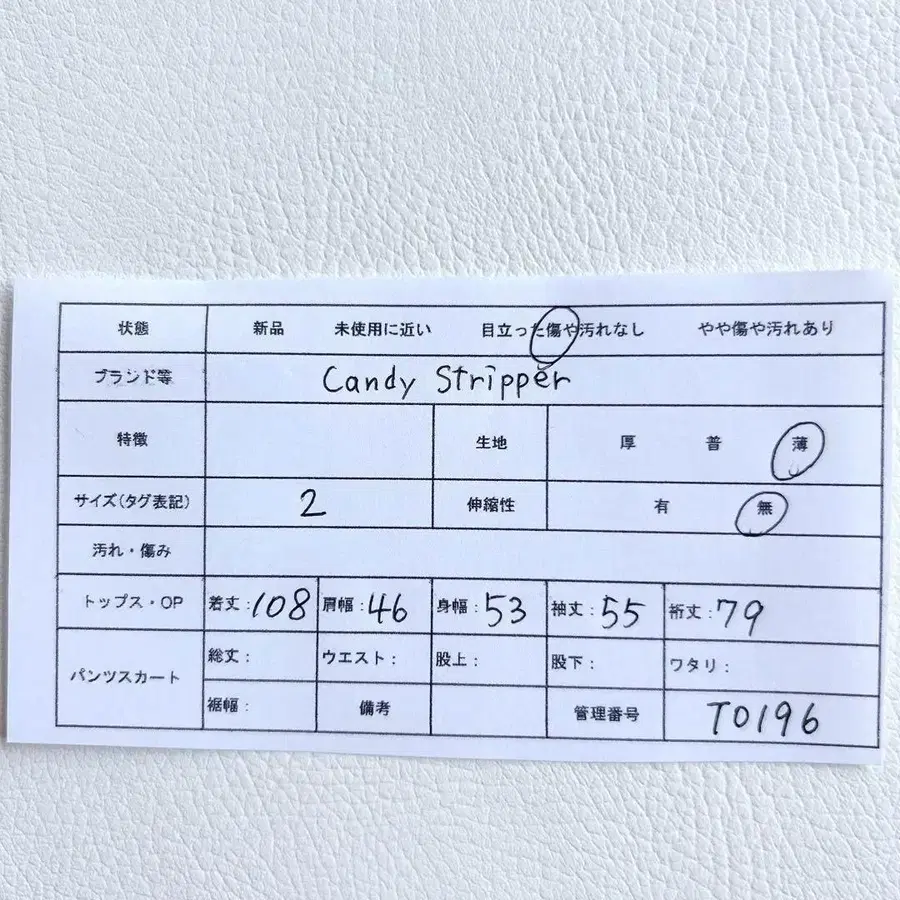 状態 新品 未使用に近い 目立った傷や汚れなし やや傷や汚れあり
ブランド等 Candy Stripper
特徴 生地 厚 普 薄
サイズ(タグ表記) 2 伸縮性 有 無
汚れ・傷み
トップス・OP 着丈:108 肩幅:46 身幅:53 袖丈:55 裄丈:79
パンツスカート 総丈: ウエスト: 股上: 股下: ワタリ:
裾幅: 備考 管理番号 T0196